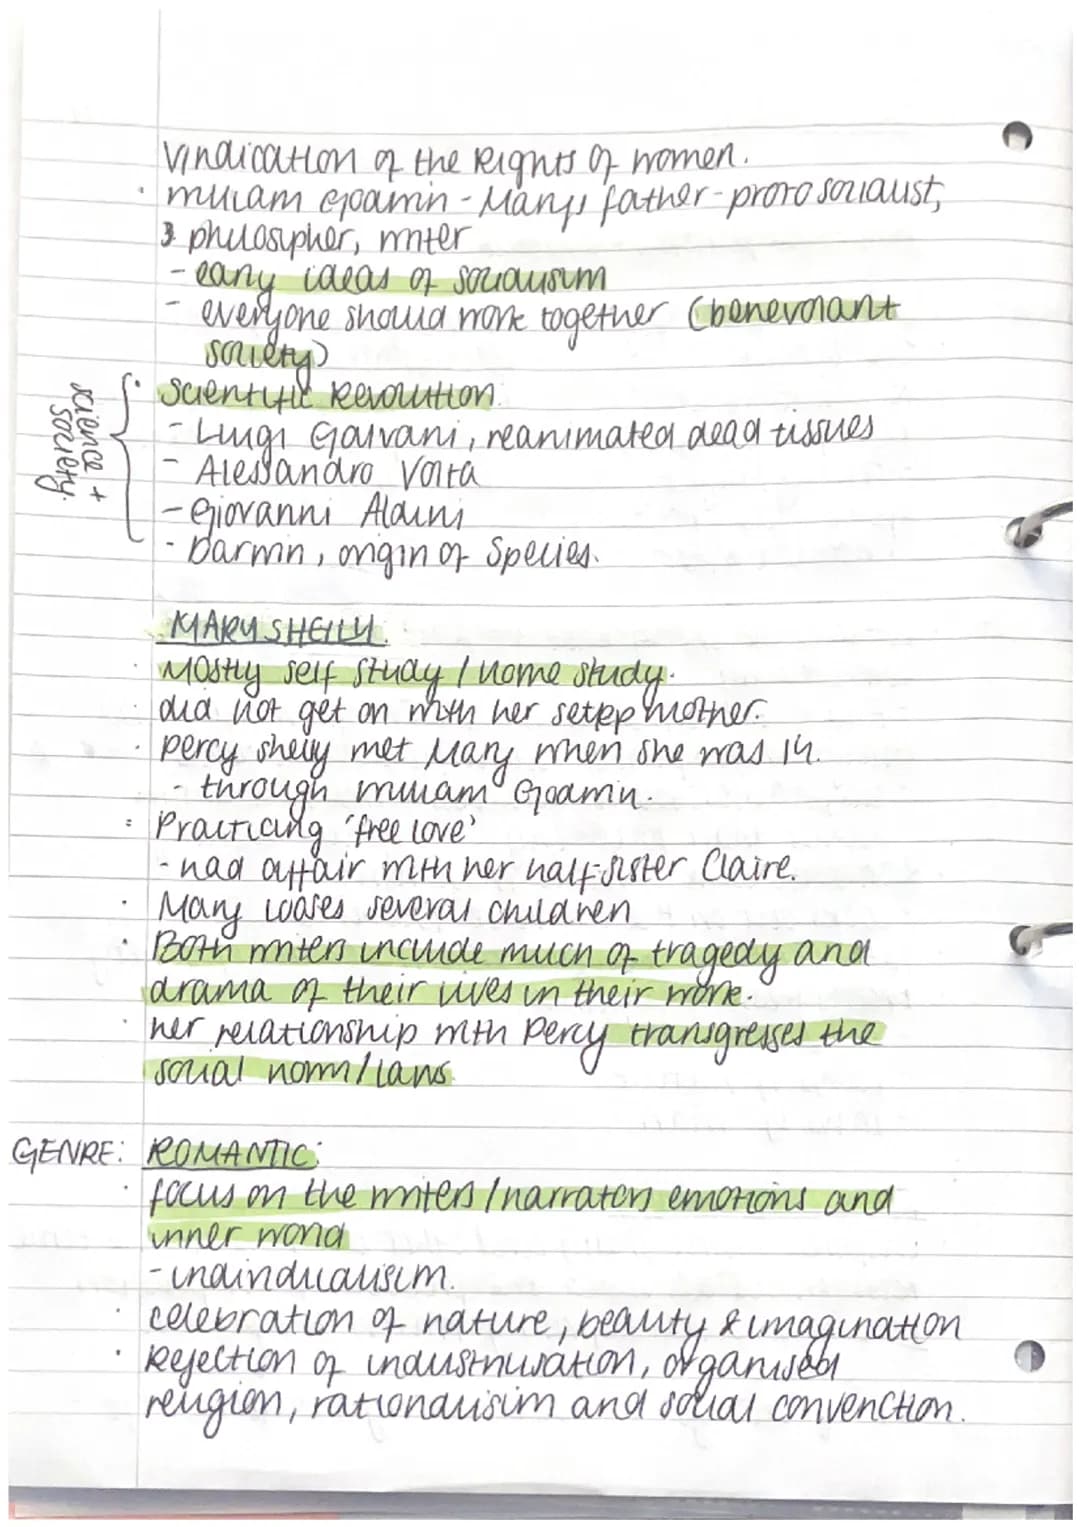 Vindication of the Rights of women.
· William Godwin - Mary's father - proto socialist,
& philosipher, writer
- early ideas of socialisim
- everyone should work together (benevolant
society)
science +
society.
· Scientific Revolution.
- Luigi Galvani, reanimated dead tissues
- Alessandro Volta
- Giovanni Aldini
- Darwin, origin of Species.
MARY SHELLY.
· Mostly self study / home study.
· did not get on with her setpp mother.
· percy shelly met Mary when she was 14.
- through William Godwin.
: Practicing 'free love'
- had affair with her half-sister Claire.
· Mary looses several children
· Both writers include much of tragedy and
drama of their lives in their work.
· her relationship with Percy transgresses the
social norm/laws.
GENRE: ROMANTIC:
· focus on the writers/narrators emotions and
inner world
- individualisim.
· celebration of nature, beauty & imagination
· Rejection of industrilisation, organised
religion, rationalisim and social convenction.